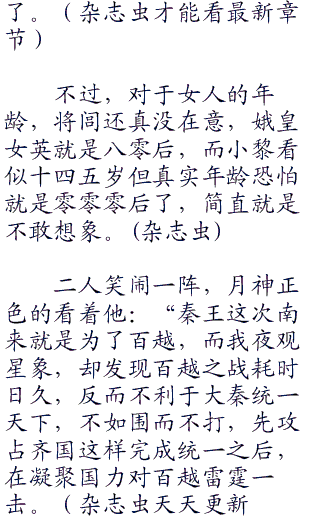 了。（杂志虫才能看最新章
节）
不过，对于女人的年
龄，将闾还真没在意，娥皇
女英就是八零后，而小黎看
似十四五岁但真实年龄恐怕
就是零零零后了，简直就是
不敢想象。(杂志虫)
二人笑闹一阵，月神正
色的看着他：“秦王这次南
来就是为了百越，而我夜观
星象，却发现百越之战耗时
日久，反而不利于大秦统一
天下，不如围而不打，先攻
占齐国这样完成统一之后，
在凝聚国力对百越雷霆一
击。（杂志虫天天更新